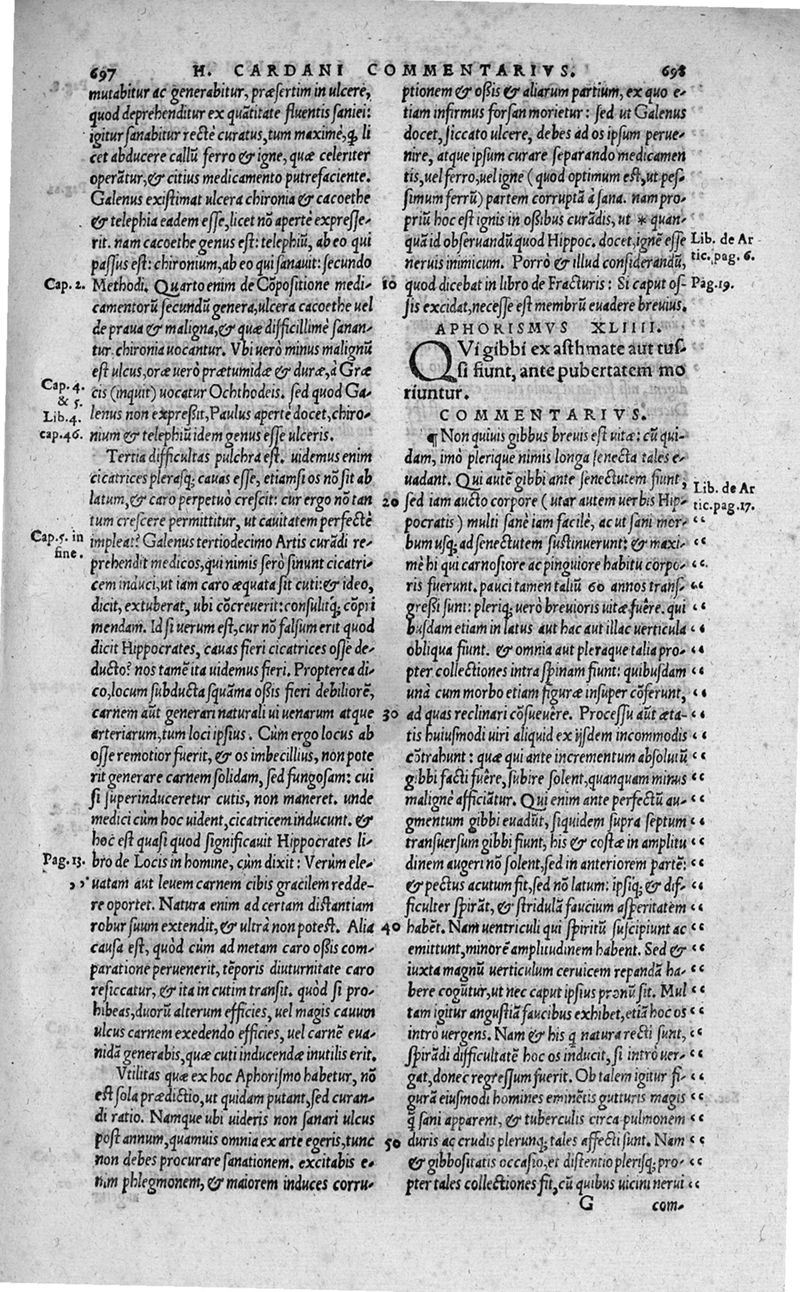 697 H. CARDANI COMMENTARIVS. 698
mutabitur ac generabitur, præsertim in ulcere,
quod deprehenditur ex quãtitate fluentis saniei:
igitur sanabitur rectè curatus, tum maximè, q̃ li
cet abducere callũ ferro & igne, quæ celeriter
operãtur, & citius medicamento putrefaciente.
Galenus existimat ulcera chironia & cacoethe
& telephia eadem esse, licet nõ apertè expresse-
rit. nam cacoethe genus est: telephiũ, ab eo qui
passus est: chironium, ab eo qui sanauit: secundo
Cap. 2. Methodi. Quarto enim de Cõpositione medi-
camentorũ secundũ genera, ulcera cacoethe uel
de praua & maligna, & quæ difficillimè sanan-
tur chironia uocantur. Vbi uerò minus malignũ
est ulcus, oræ uerò prætumidæ & duræ, à Græ
Cap. 4. & 5. cis (inquit) uocatur Ochthodeis. sed quod Ga-
Lib. 4. lenus non expreßit, Paulus apertè docet, chiro-
cap. 46. nium & telephiũ idem genus esse ulceris.
Tertia difficultas pulchra est. uidemus enim
cicatrices plerasq; cauas esse, etiamsi os nõ sit ab
latum, & caro perpetuò crescit: cur ergo nõ tan
tum crescere permittitur, ut cauitatem perfectè
Cap. 5. in fine. impleat? Galenus tertiodecimo Artis curãdi re-
prehendit medicos, qui nimis serò sinunt cicatri
cem induci, ut iam caro æquata sit cuti: & ideo,
dicit, extuberat, ubi cõcreuerit: consulitq; cõpri
mendam. Id si uerum est, cur nõ falsum erit quod
dicit Hippocrates, cauas fieri cicatrices osse de-
ducto? nos tamẽ ita uidemus fieri. Propterea di-
co, locum subducta squãma oßis fieri debiliorẽ,
carnem aũt generari naturali ui uenarum atque
arteriarum, tum loci ipsius. Cùm ergo locus ab
osse remotior fuerit, & os imbecillius, non pote
rit generare carnem solidam, sed fungosam: cui
si superinduceretur cutis, non maneret. unde
medici cùm hoc uident, cicatricem inducunt. &
hoc est quasi quod significauit Hippocrates li-
Pag. 13. bro de Locis in homine, cùm dixit: Verùm ele-
,, uatam aut leuem carnem cibis gracilem redde-
re oportet. Natura enim ad certam distantiam
robur suum extendit, & ultrà non potest. Alia
causa est, quòd cùm ad metam caro oßis com-
paratione peruenerit, tẽporis diuturnitate caro
resiccatur, & ita in cutim transit. quòd si pro-
hibeas, duorũ alterum efficies, uel magis cauum
ulcus carnem exedendo efficies, uel carnẽ eua-
nidã generabis, quæ cuti inducendæ inutilis erit.
Vtilitas quæ ex hoc Aphorismo habetur, nõ
est sola prædictio, ut quidam putant, sed curan-
di ratio. Namque ubi uideris non sanari ulcus
post annum, quamuis omnia ex arte egeris, tunc
non debes procurare sanationem. excitabis e-
nim phlegmonem, & maiorem induces corru-
ptionem & oßis & aliarum partium, ex quo e-
tiam infirmus forsan morietur: sed ut Galenus
docet, siccato ulcere, debes ad os ipsum perue-
nire, atque ipsum curare separando medicamen
tis, uel ferro, uel igne (quod optimum est, ut pes-
simum ferrũ) partem corruptã à sana. nam pro-
priũ hoc est ignis in oßibus curãdis, ut * quan-
quã id obseruandũ quod Hippoc. docet, ignẽ esse Lib. de Ar
neruis inimicum. Porrò & illud considerandũ, tic. pag. 6.
10 quod dicebat in libro de Fracturis: Si caput os- Pag. 19.
sis excidat, necesse est membrũ euadere breuius.
APHORISMVS XLIIII.
QVi gibbi ex asthmate aut tus-
si fiunt, ante pubertatem mo
riuntur.
COMMENTARIVS.
¶ Non quiuis gibbus breuis est uitæ: cũ qui-
dam, imò plerique nimis longa senecta tales e-
uadant. Qui autẽ gibbi ante senectutem fiunt, Lib. de Ar
20 sed iam aucto corpore (utar autem uerbis Hip- tic. pag. 17.
pocratis) multi sanè iam facile, ac ut sani mor- “
bum usq; ad senectutem sustinuerunt: & maxi- “
mè hi qui carnosiore ac pinguiore habitu corpo- “
ris fuerunt. pauci tamen taliũ 60 annos trans- “
greßi sunt: pleriq; uerò breuioris uitæ fuêre. qui “
busdam etiam in latus aut hac aut illac uerticula “
obliqua fiunt. & omnia aut pleraque talia pro- “
pter collectiones intra spinam fiunt: quibusdam “
unà cum morbo etiam figuræ insuper cõferunt, “
30 ad quas reclinari cõsueuêre. Processu aũt æta- “
tis huiusmodi uiri aliquid ex ijsdem incommodis “
cõtrahunt: quæ qui ante incrementum absolutũ “
gibbi facti fuêre, subire solent, quanquam minus “
malignè afficiãtur. Qui enim ante perfectũ au- “
gmentum gibbi euadũt, siquidem supra septum “
transuersum gibbi fiunt, his & costæ in amplitu “
dinem augeri nõ solent, sed in anteriorem partẽ: “
& pectus acutum fit, sed nõ latum: ipsiq; & dif- “
ficulter spirãt, & stridulã faucium asperitatem “
40 habẽt. Nam uentriculi qui spiritũ suscipiunt ac “
emittunt, minorẽ amplitudinem habent. Sed & “
iuxta magnũ uerticulum ceruicem repandã ha- “
bere cogũtur, ut nec caput ipsius pronũ sit. Mul “
tam igitur angustiã faucibus exhibet, etiã hoc os “
intrò uergens. Nam & his q natura recti sunt, “
spirãdi difficultatẽ hoc os inducit, si intrò uer- “
gat, donec regressum fuerit. Ob talem igitur fi- “
gurã eiusmodi homines eminẽtis gutturis magis “
q̃ sani apparent, & tuberculis circa pulmonem “
50 duris ac crudis plerunq; tales affecti sunt. Nam “
& gibbositatis occasio, et distentio plerisq; pro- “
pter tales collectiones fit, cũ quibus uicini nerui “
G com-